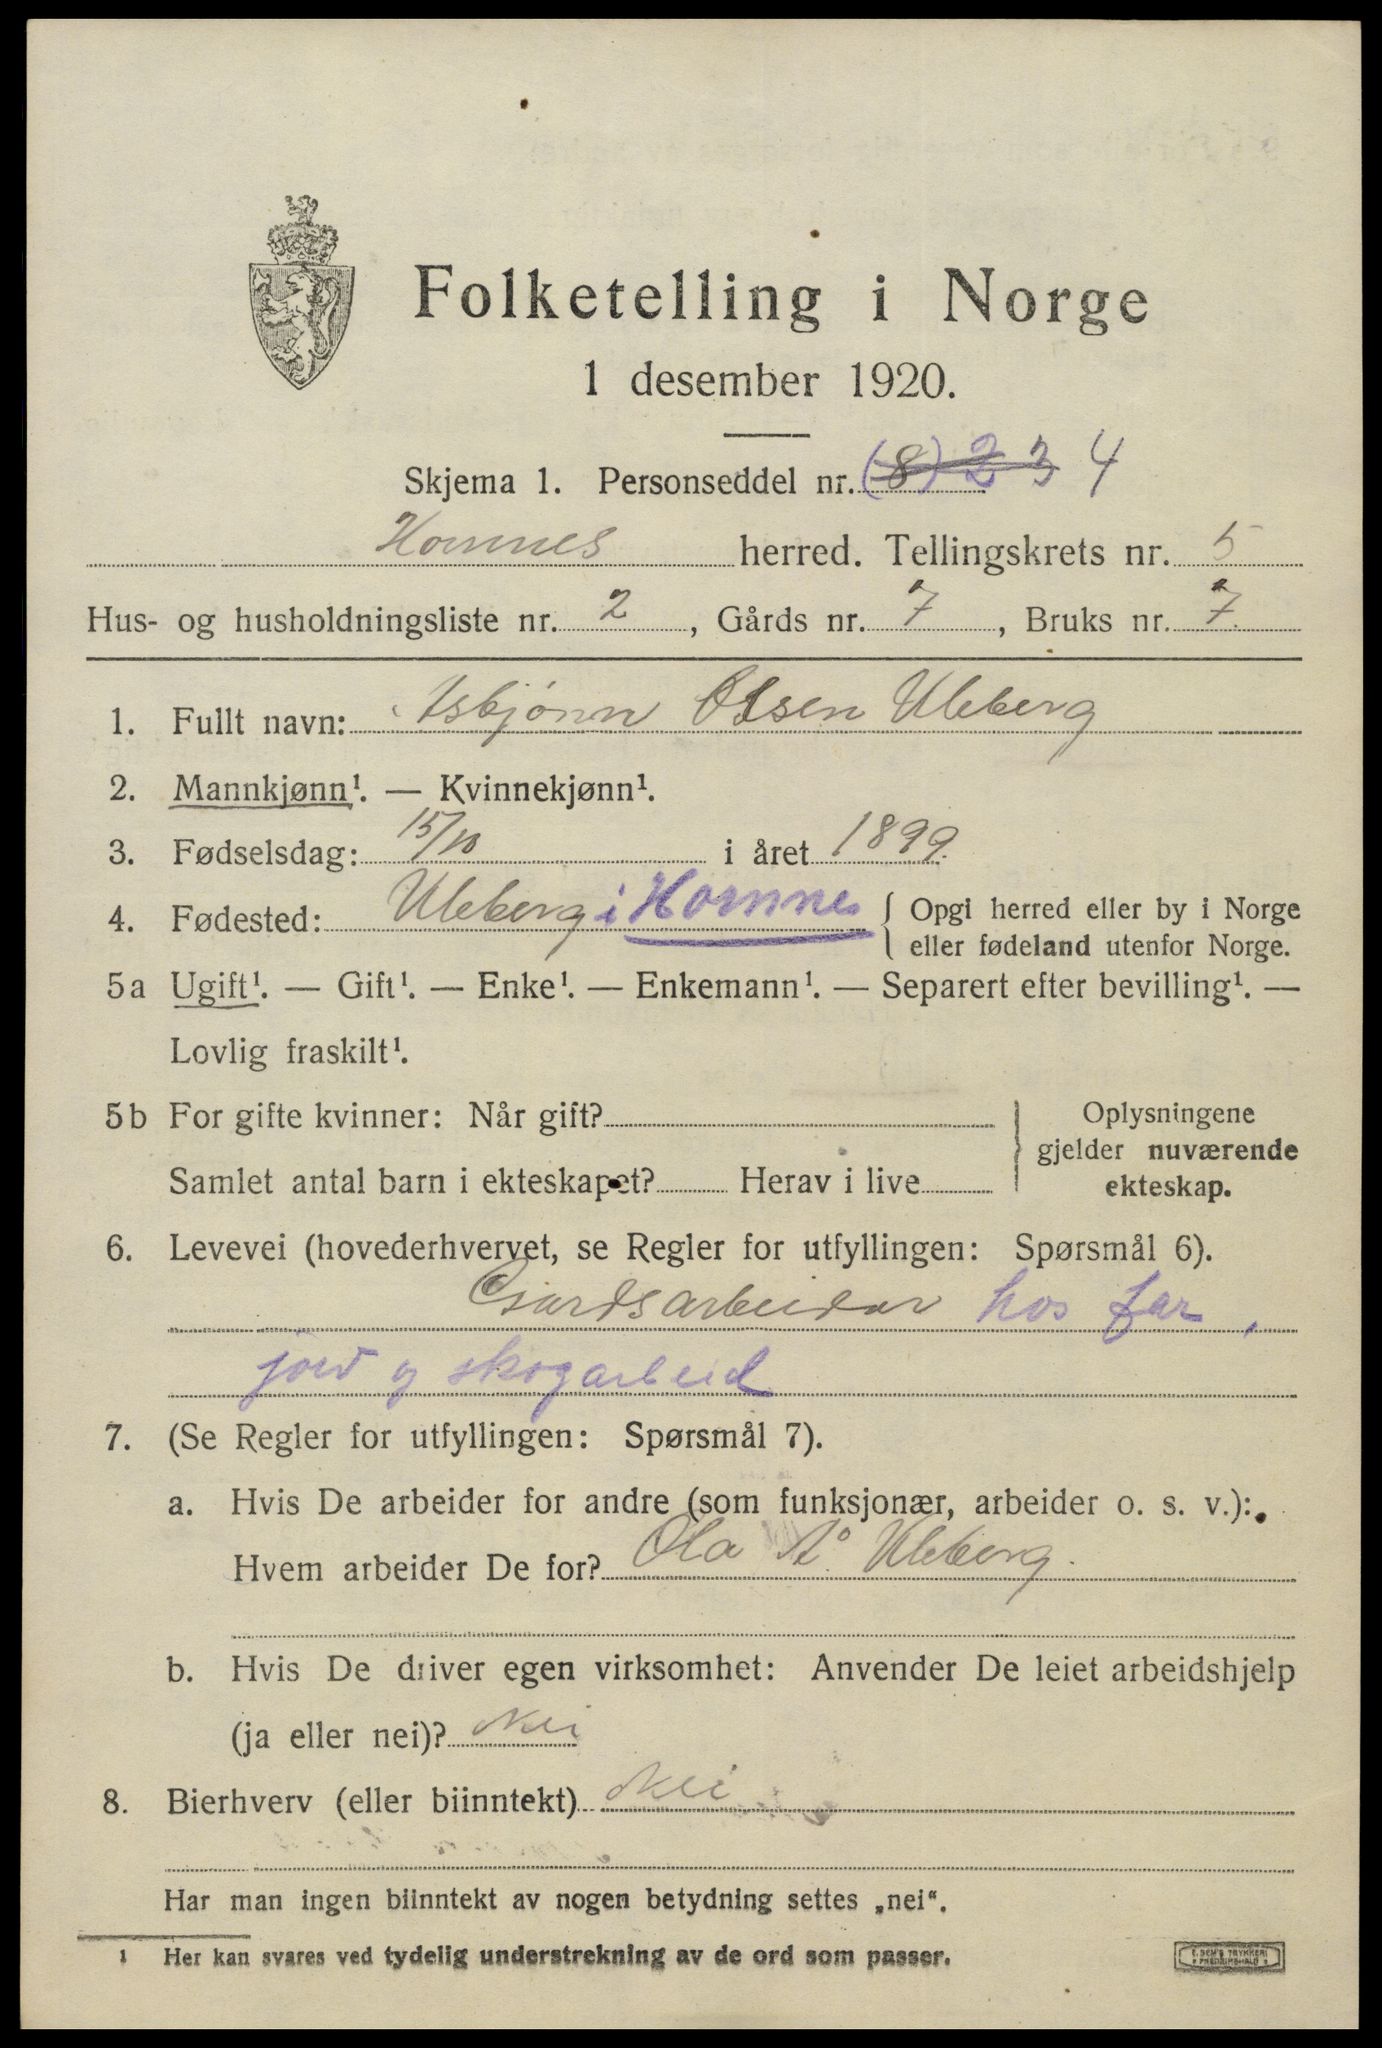 Folketelling i Norge
1 desember 1920.
Skjema 1. Personseddel nr. (8) 2 3 4
Hornnes herred. Tellingskrets nr. 5
Hus- og husholdningsliste nr. 2, Gårds nr. 7, Bruks nr. 7.
1. Fullt navn: Asbjønn Olsen Uleberg
2. Mannkjønn¹. — Kvinnekjønn¹.
3. Fødselsdag: 15/10 i året 1899.
4. Fødested: Uleberg i Hornnes { Opgi herred eller by i Norge
eller fødeland utenfor Norge.
5a Ugift¹. — Gift¹. — Enke¹. — Enkemann¹. — Separert efter bevilling¹. —
Lovlig fraskilt¹.
5b For gifte kvinner: Når gift?
Samlet antal barn i ekteskapet? Herav i live
} Oplysningene
gjelder nuværende
ekteskap.
6. Levevei (hovederhvervet, se Regler for utfyllingen: Spørsmål 6).
Gardsarbeidar hos far,
jord og skogarbeid
7. (Se Regler for utfyllingen: Spørsmål 7).
a. Hvis De arbeider for andre (som funksjonær, arbeider o. s. v.):
Hvem arbeider De for? Ola Å. Uleberg.
b. Hvis De driver egen virksomhet: Anvender De leiet arbeidshjelp
(ja eller nei)? Nei
8. Bierhverv (eller biinntekt) Nei
Har man ingen biinntekt av nogen betydning settes „nei“.
1 Her kan svares ved tydelig understrekning av de ord som passer.
E. SEM'S TRYKKERI
FREDRIKSHALD